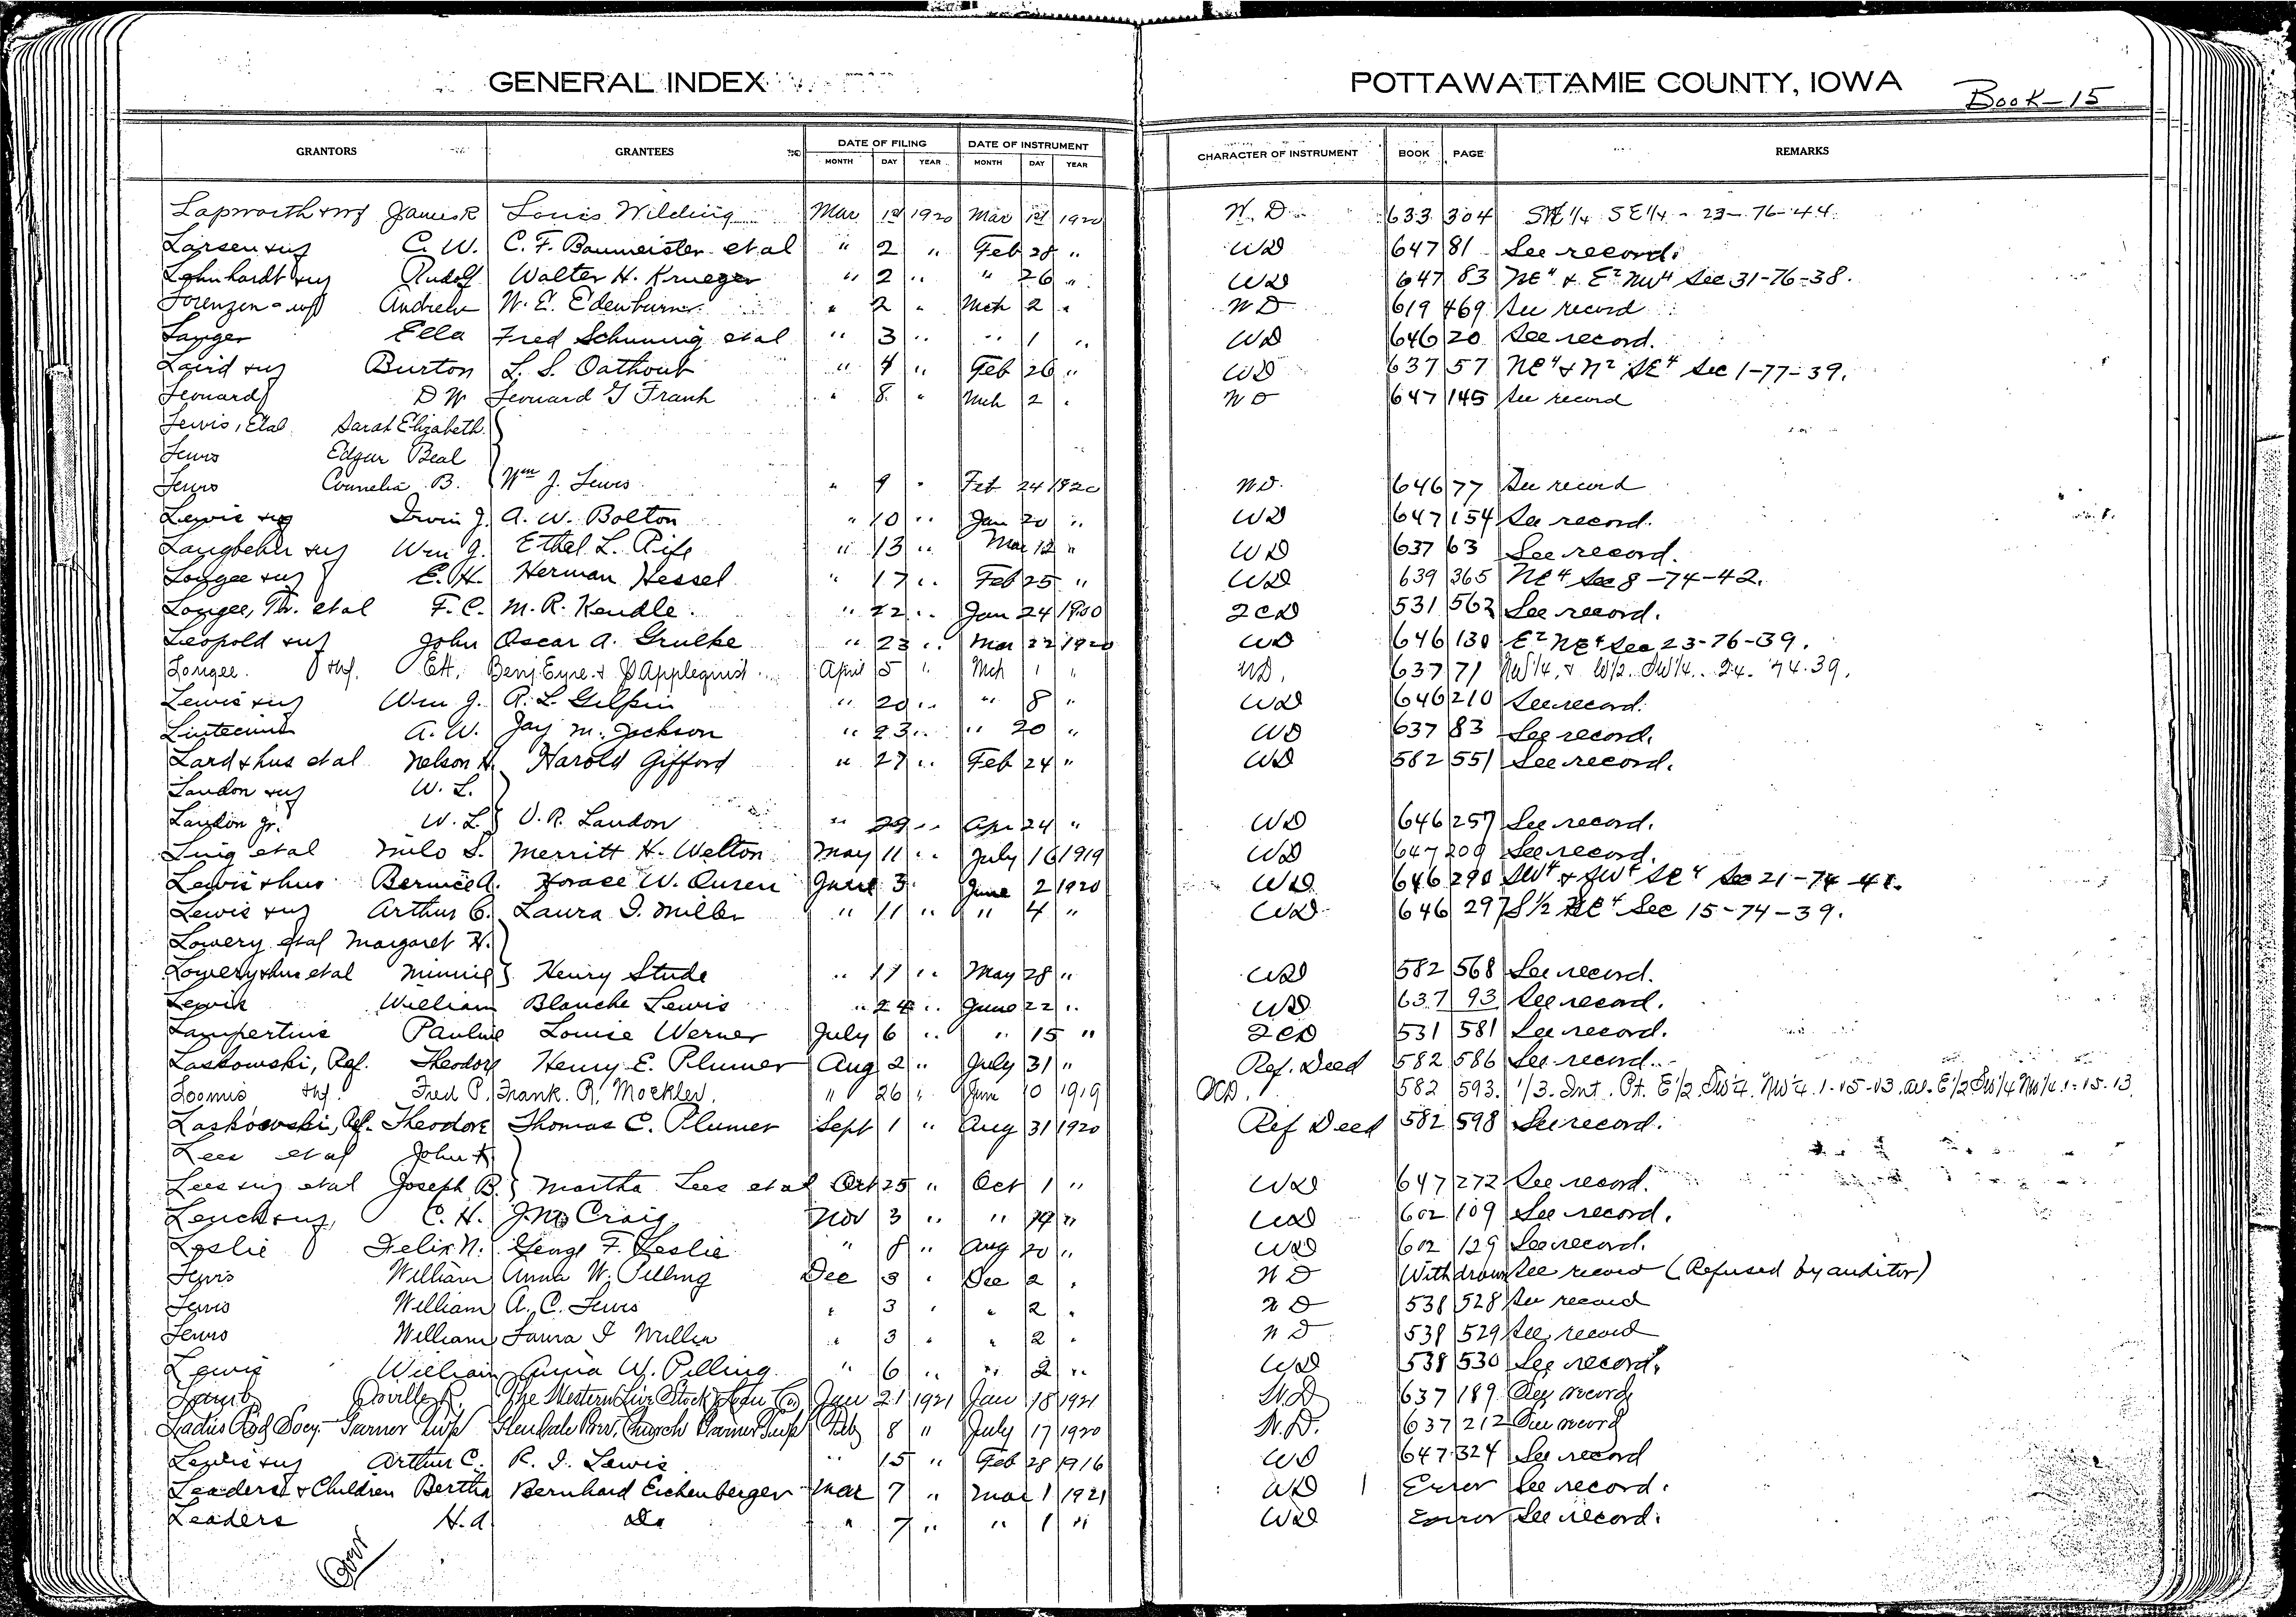 GENERAL INDEX
POTTAWATTAMIE COUNTY, IOWA
Book-15
GRANTORS GRANTEES DATE OF FILING DATE OF INSTRUMENT CHARACTER OF INSTRUMENT BOOK PAGE REMARKS
MONTH DAY YEAR MONTH DAY YEAR
Lapworth & wf James R Louis Wilding Mar 1st 1920 Mar 1st 1920 W. D. 633 304 SE 1/4 - 23-76-44
Larsen & wf C. W. C. F. Baumeister et al " 2 " Feb 28 " WD 647 81 See record.
Lehnhardt & wf Rudolf Walter H. Krueger " 2 " " 26 " WD 647 83 NE4 & E2 NW4 Sec 31-76-38.
Lorenzen - wf Andrew W. E. Edenburn " 2 " Mch 2 " WD 619 469 See record
Langer Ella Fred Schuning et al " 3 " " 1 " WD 646 20 See record.
Laird & wf Burton L. S. Oathout " 4 " Feb 26 " WD 637 57 NE4 & N2 SE4 Sec 1-77-39.
Leonard D W Leonard G Frank " 8 " Mch 2 " WD 647 145 See record
Lewis, Etal Sarah Elizabeth
Lewis Edgar Beal
Lewis Cornelia B. Wm J. Lewis " 9 " Feb 24 1920 WD. 646 77 See record
Lewis & wf Irwin J. A. W. Bolton " 10 " Jan 20 " WD 647 154 See record.
Langbehn & wf Wm J. Ethel L. Rife " 13 " Mar 12 " WD 637 63 See record.
Lougee & wf E. H. Herman Hessel " 17 " Feb 25 " WD 639 365 NE4 Sec 8-74-42.
Lougee, Tr. et al F. C. M. R. Kendle " 22 " Jan 24 1920 QCD 531 562 See record.
Leopold & wf John Oscar A. Grulke " 23 " Mar 22 1920 WD 646 130 E2 NE4 Sec 23-76-39.
Lougee & wf. E.H. Benj Eyre & Applequist April 5 " Mch 1 " WD. 637 71 NW1/4. & W1/2. SW1/4. 24. 74.39.
Lewis & wf Wm J. R. L. Gilpin " 20 " " 8 " WD 646 210 See record.
Lintecum A. W. Jay M. Jackson " 23 " " 20 " WD 637 83 See record.
Lard & hus et al Nelson H. Harold Gifford " 27 " Feb 24 " WD 582 551 See record.
Landon & wf W. L.
Landon Jr. W. L. V. R. Landon " 29 " Apr 24 " WD 646 257 See record.
Luig et al Milo S. Merritt H. Welton May 11 " July 16 1919 WD 647 200 See record.
Lewis & hus Bernice A. Horace W. Ouren June 3 June 2 1920 WD 646 290 SW4 & SW4 SE4 Sec 21-74-41.
Lewis & wf Arthur C. Laura I. Miller " 11 " " 4 " WD 646 297 S 1/2 NE4 Sec 15-74-39.
Lowery et al Margaret H.
Lowery & hus et al Minnie Henry Stude " 17 " May 28 " WD 582 568 See record.
Lewis William Blanche Lewis " 24 " June 22 " WD 637 93 See record.
Lampertius Pauline Louise Werner July 6 " " 15 " QCD 531 581 See record.
Laskowski, Ref. Theodore Henry E. Plumer Aug 2 " July 31 " Ref. Deed 582 586 See record.
Loomis & wf. Fred P. Frank. R. Mockler. " 26 " June 10 1919 QCD. 582 593. 1/3. Int. Pt. E1/2
Laskowski, Ref. Theodore Thomas C. Plumer Sept 1 " Aug 31 1920 Ref Deed 582 598 See record.
Lees et al John K
Lees & wf et al Joseph B. Martha Lees et al Oct 25 " Oct 1 " WD 647 272 See record.
Leuck & wf, C. H. J.M. Craig Nov 3 " " " WD 602 109 See record.
Leslie Felix N. George F. Leslie " 8 " Aug 20 " WD 602 129 See record.
Lewis William Anna W. Pilling Dec 3 " Dec 2 " WD Withdrawn See record (Refused by auditor)
Lewis William A. C. Lewis " 3 " " 2 " WD 538 528 See record
Lewis William Laura I Miller " 3 " " 2 " WD 538 529 See record
Lewis William Anna W. Pilling " 6 " " 2 " WD 538 530 See record.
Lamb Orville R. The Western Live Stock & Loan Co Jan 21 1921 Jan 18 1921 W.D. 637 189 See record
Ladies Aid Socy. Garner Twp Glendale Church Garner Twp Feb 8 " July 17 1920 W.D. 637 212 See record
Lewis & wf Arthur C. R. I. Lewis " 15 " Feb 28 1916 WD 647 324 See record
Leaders & Children Bertha Bernhard Eichenberger Mar 7 " Mar 1 1921 WD Error See record.
Leaders H. A. Do " 7 " " 1 " WD Error See record.
Over